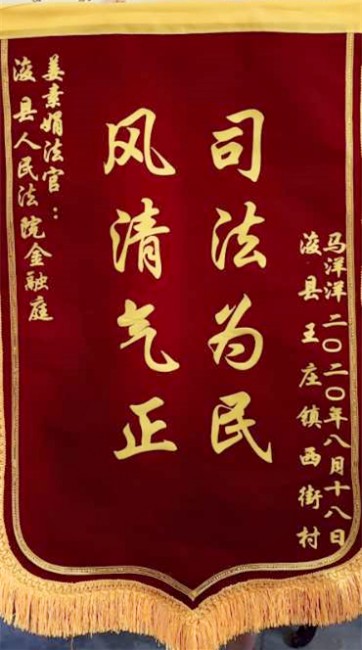 浚县人民法院金融庭
姜素娟法官：
司法为民
风清气正
浚县王庄镇西街村
马洋洋二〇二〇年八月十八日